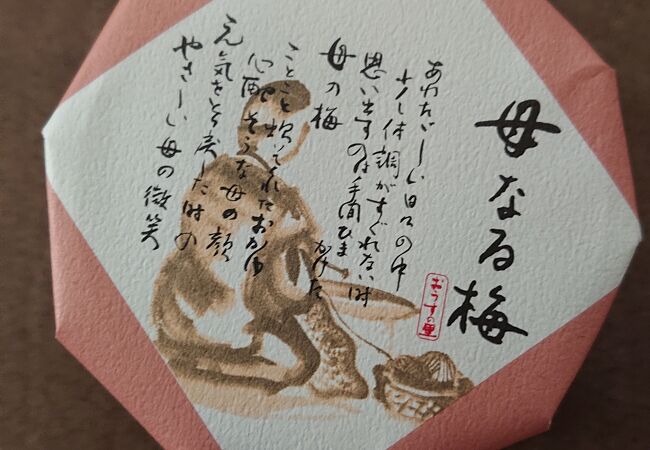 母なる梅
おうすの里
あわただしい日々の中
少し体調がすぐれない時
思い出すのは手間ひま
かけた
母の梅
ことこと炊いてくれたおかゆ
心配そうな母の顔
元気をとり戻した時の
やさしい母の微笑